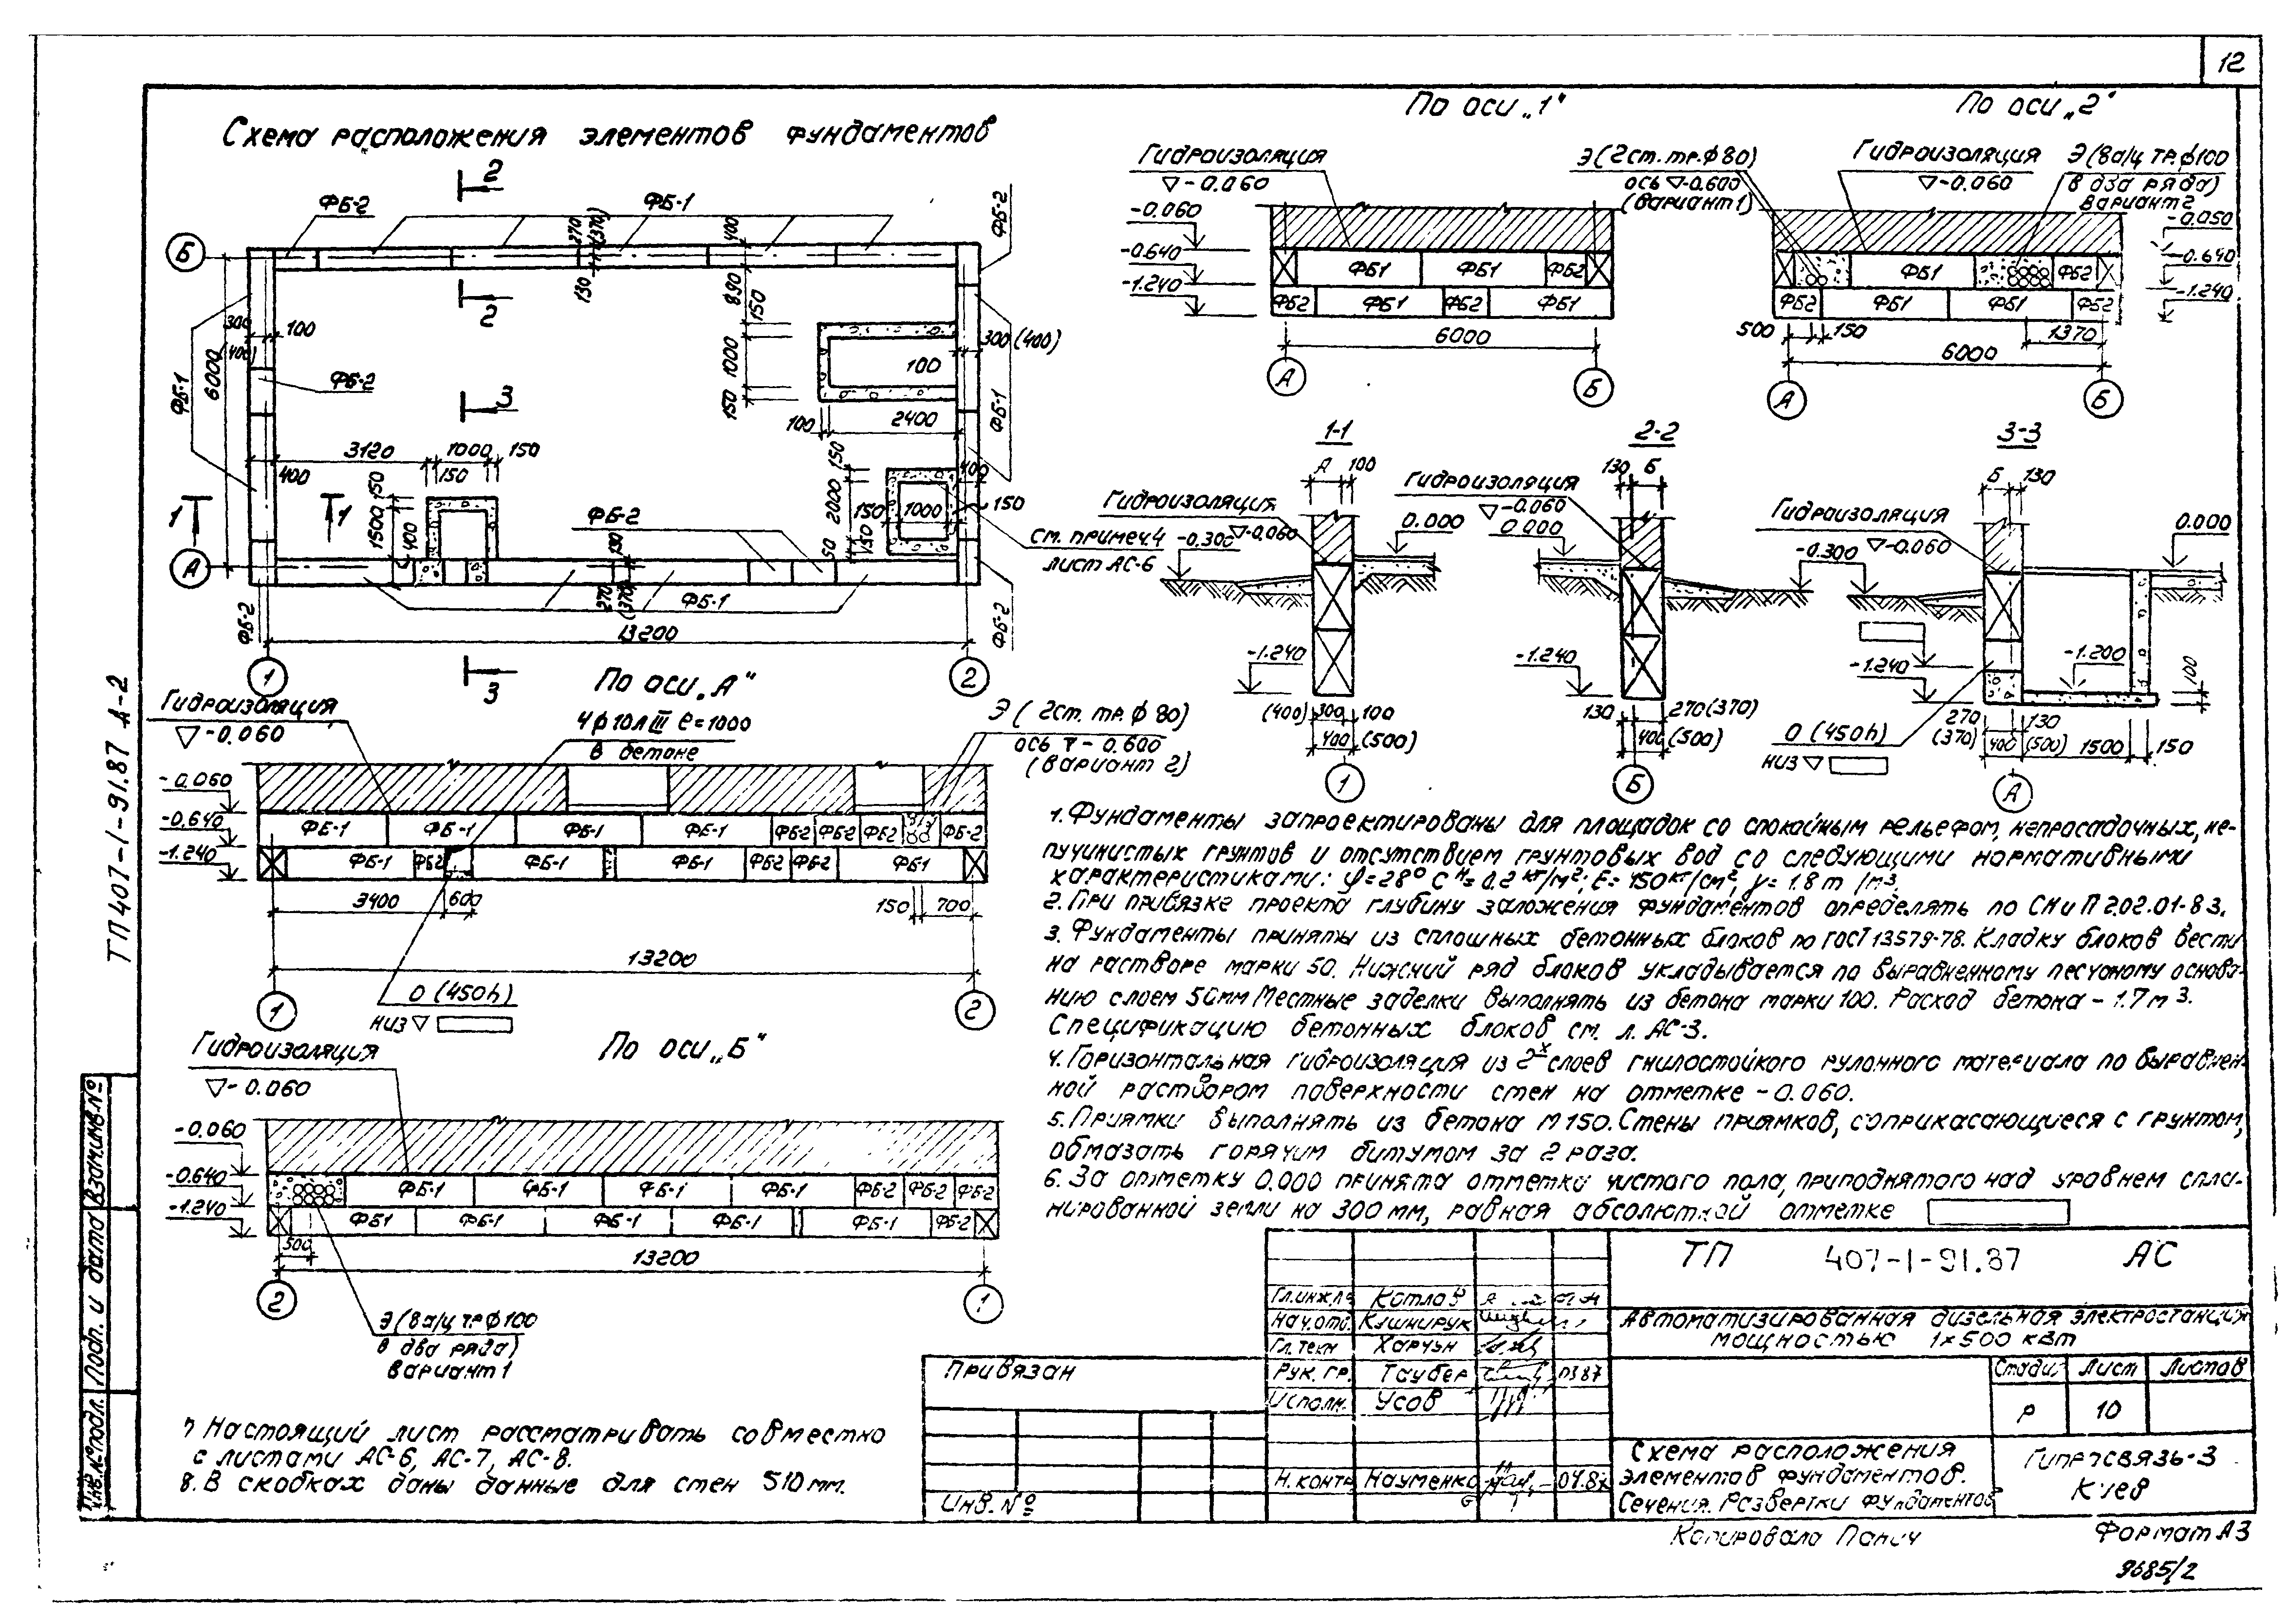 12
Схема расположения элементов фундаментов
2
ФБ-2
ФБ-1
270
(370)
400
ФБ-2
Б
130
890
150
2
300
100
(400)
300 (400)
6000
ФБ-1
ФБ-2
1000
100
3
150
ФБ-1
100
2400
3120
1000
150
150
400
150
400
150
1500
400
2000
150
1000
150
ФБ-2
1
1
130
50
150
см. примеч. 4
лист АС-6
А
270
(370)
ФБ-1
ФБ-2
ФБ-2
13200
1
3
2
По оси „1"
Гидроизоляция
▽-0.060
Э (2ст. тр. ф 80)
ось ▽-0.600
(вариант 1)
-0.060
-0.640
-1.240
ФБ1 ФБ1 ФБ2
ФБ2 ФБ1 ФБ2 ФБ1
6000
А Б
По оси „2"
Гидроизоляция
▽-0.060
Э (8а/ц тр. ф100
в два ряда)
вариант 2
-0.050
-0.640
-1.240
ФБ1 ФБ2
ФБ2 ФБ1 ФБ1 ФБ2
500 150 1370
6000
А Б
1-1
А 100
Гидроизоляция
▽-0.060
-0.300
0.000
-1.240
(400) 300 100
400 (500)
1
2-2
130 Б
Гидроизоляция
▽-0.060
0.000
-0.300
-1.240
130 270 (370)
400 (500)
Б
3-3
Б 130
Гидроизоляция
▽-0.060
0.000
-1.240
-1.200
100
270 130
(370) 400 (500) 1500 150
О (450h)
низ ▽
А
По оси „А"
Гидроизоляция
▽-0.060
4 ф 10 А III ℓ=1000
в бетоне
Э ( 2ст. тр. ф 80)
ось ▽ - 0.600
(вариант 2)
-0.060
-0.640
-1.240
ФБ-1 ФБ-1 ФБ-1 ФБ-1 ФБ-2 ФБ-2 ФБ2 ФБ-2
ФБ-1 ФБ2 ФБ-1 ФБ-1 ФБ-2 ФБ-2 ФБ1
3400 600 150 700
13200
О (450h)
низ ▽
1 2
По оси „Б"
Гидроизоляция
▽-0.060
-0.060
-0.640
-1.240
ФБ-1 ФБ-1 ФБ-1 ФБ-1 ФБ-2 ФБ-2 ФБ-2
ФБ1 ФБ-1 ФБ-1 ФБ-1 ФБ-1 ФБ-2
500
13200
2 1
Э (8а/ц тр ф100
в два ряда)
вариант 1
1. Фундаменты запроектированы для площадок со спокойным рельефом, непросадочных, не-
пучинистых грунтов и отсутствием грунтовых вод со следующими нормативными
характеристиками: φ=28° Cн=0.2 кг/м²; Е= 150кг/см², γ= 1.8 т /м³.
2. При привязке проекта глубину заложения фундаментов определять по СНиП 2.02.01-83.
3. Фундаменты приняты из сплошных бетонных блоков по ГОСТ 13579-78. Кладку блоков вести
на растворе марки 50. Нижний ряд блоков укладывается по выравненному песчаному основа-
нию слоем 50мм Местные заделки выполнять из бетона марки 100. Расход бетона - 1.7 м 3.
Спецификацию бетонных блоков см. л. АС-3.
4. Горизонтальная гидроизоляция из 2х слоев гнилостойкого рулонного материала по выравнен-
ной раствором поверхности стен на отметке -0.060.
5. Приямки выполнять из бетона М 150. Стены приямков, соприкасающиеся с грунтом,
обмазать горячим битумом за 2 раза.
6. За отметку 0.000 принята отметка чистого пола, приподнятого над уровнем спла-
нированной земли на 300 мм, равная абсолютной отметке
7 Настоящий лист рассматривать совместно
с листами АС-6, АС-7, АС-8.
8. В скобках даны данные для стен 510 мм.
ТП 407-1-91.87 А-2
Взам.инв.№
Подп. и дата
Инв.№подл.
Привязан
Инв. №
Гл.инж.
Котлов
Нач.отд. Кушнирук
Гл. техн Харчун
Рук. гр. Таубер 0387
Исполн. Усов
Н. контр Науменко 04.87
ТП 407-1-91.87 АС
Автоматизированная дизельная электростанция
мощностью 1×500 кВт
Стадия Лист Листов
Р 10
Схема расположения
элементов фундаментов.
Сечения. Развертки фундаментов
Гипросвязь-3
Киев
Копировала Панич
Формат А3
9685/2